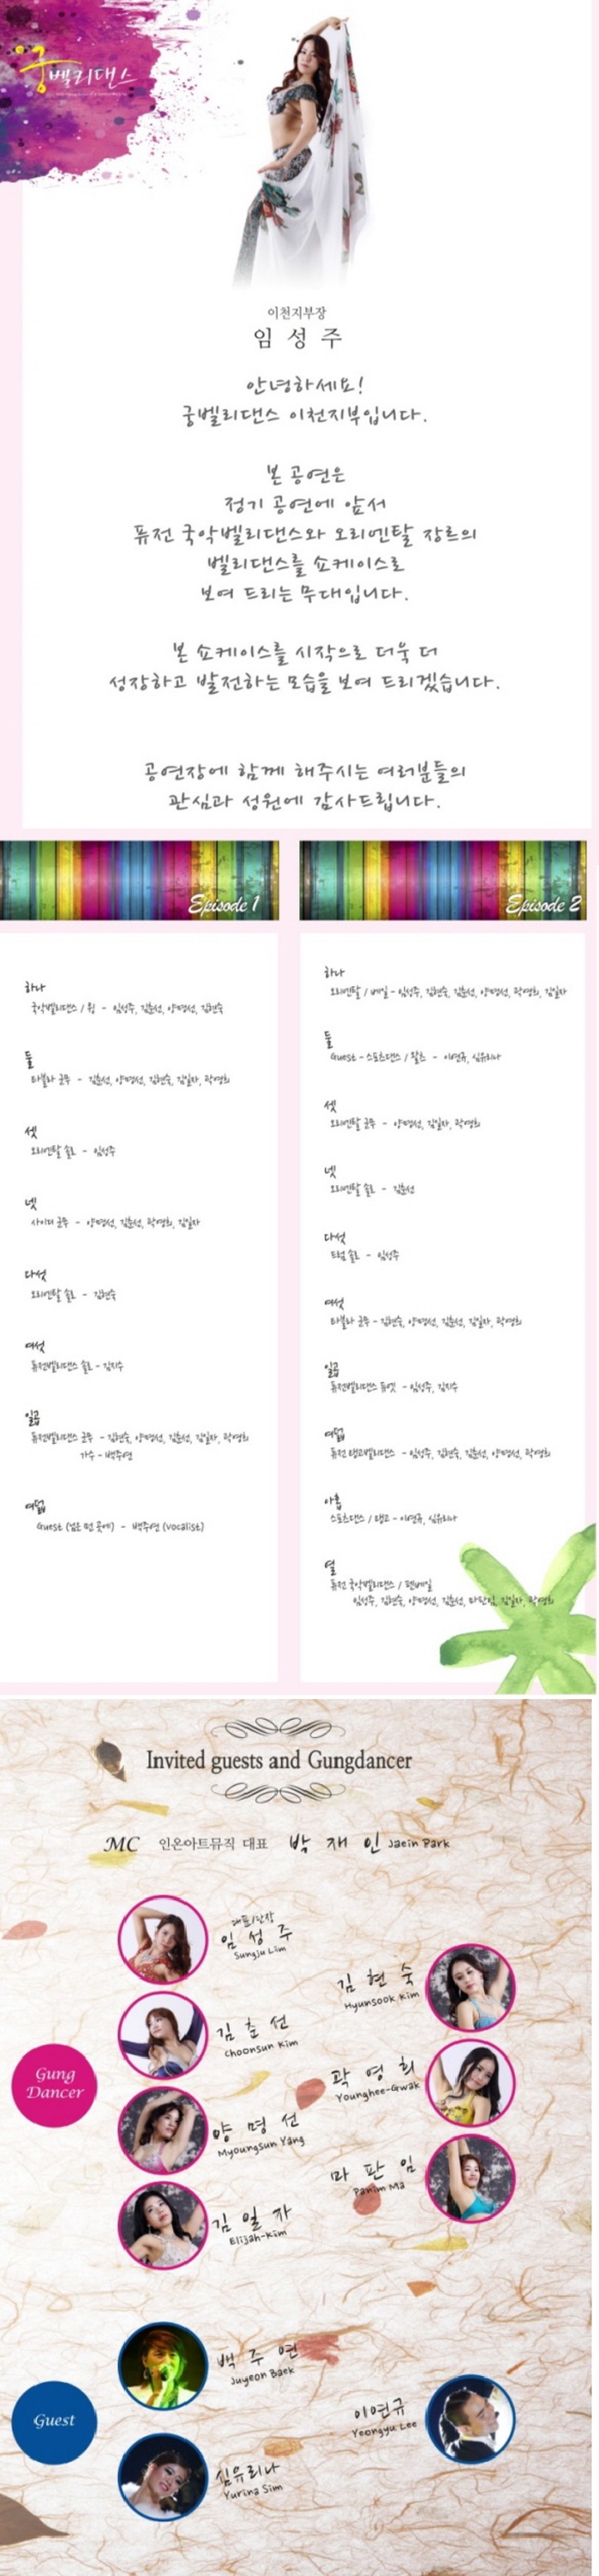 궁벨리댄스
이천지부장
임성주
안녕하세요!
궁벨리댄스 이천지부입니다.
본 공연은
정기 공연에 앞서
퓨전 국악벨리댄스와 오리엔탈 장르의
벨리댄스를 쇼케이스로
보여 드리는 무대입니다.
본 쇼케이스를 시작으로 더욱 더
성장하고 발전하는 모습을 보여 드리겠습니다.
공연장에 함께 해주시는 여러분들의
관심과 성원에 감사드립니다.
Episode 1
하나
국악벨리댄스 / 윙 - 임성주, 김춘선, 양명선, 김현숙
둘
타블라 군무 - 김춘선, 양명선, 김현숙, 김일자, 곽영희
셋
오리엔탈 솔로 - 임성주
넷
사이디 군무 - 양명선, 김춘선, 곽영희, 김일자
다섯
오리엔탈 솔로 - 김현숙
여섯
퓨전벨리댄스 솔로 - 김지수
일곱
퓨전벨리댄스 군무 - 김현숙, 양명선, 김춘선, 김일자, 곽영희
가수 - 백주연
여덟
Guest (넓은 먼 곳에) - 백주연 (vocalist)
Episode 2
하나
오리엔탈 / 베일 - 임성주, 김현숙, 김춘선, 양명선, 곽영희, 김일자
둘
Guest - 스포츠댄스 / 왈츠 - 이연규, 심유리나
셋
오리엔탈 군무 - 양명선, 김일자, 곽영희
넷
오리엔탈 솔로 - 김춘선
다섯
드럼 솔로 - 임성주
여섯
타블라 군무 - 김현숙, 양명선, 김춘선, 김일자, 곽영희
일곱
퓨전벨리댄스 듀엣 - 임성주, 김지수
여덟
퓨전 탱고벨리댄스 - 임성주, 김현숙, 김춘선, 양명선, 곽영희
아홉
스포츠댄스 / 탱고 - 이연규, 심유리나
열
퓨전 국악벨리댄스 / 팬베일
임성주, 김현숙, 양명선, 김춘선, 마판임, 김일자, 곽영희
Invited guests and Gungdancer
MC 인온아트뮤직 대표 박재인 Jaein Park
Gung
Dancer
대표/단장
임성주
Sungju Lim
김현숙
Hyunsook Kim
김춘선
Choonsun Kim
곽영희
Younghee-Gwak
양명선
Myoungsun Yang
마판임
Panim Ma
김일자
Elijah-Kim
Guest
백주연
Juyeon Baek
이연규
Yeongyu Lee
심유리나
Yurina Sim